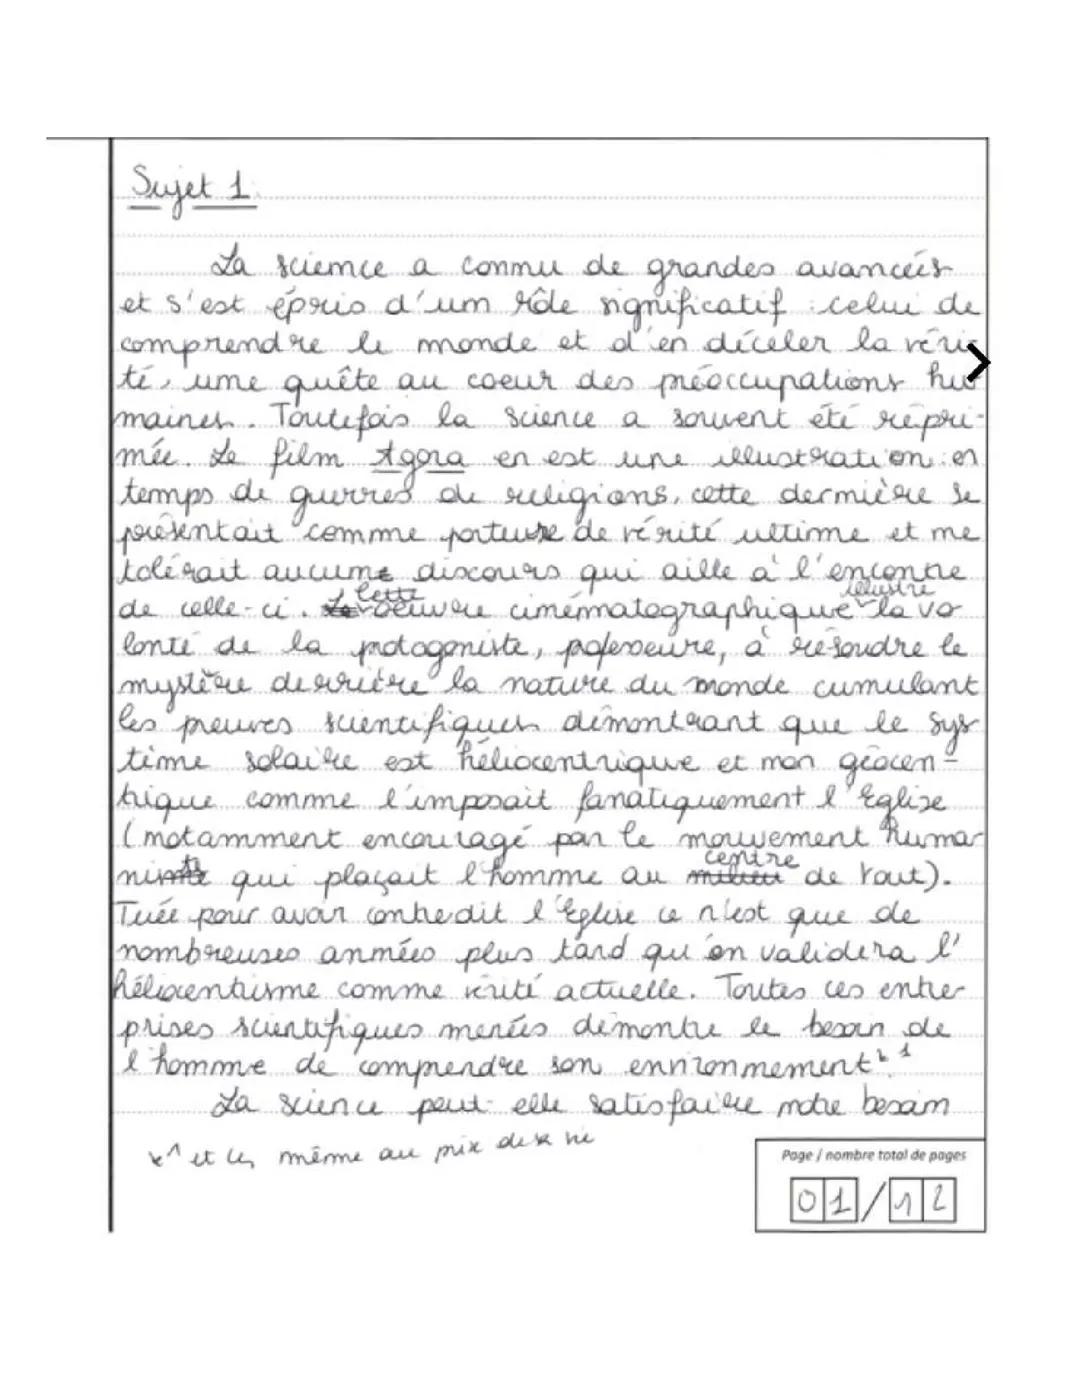 Sujet 1:
La science a connu de grandes avancées
et s'est épris d'un rôle significatif : celui de
comprendre le monde et d'en déceler la véri
té, une quête au coeur des préoccupations hu
maines. Toutefois la science a souvent été répri-
mée. Le film Agora en est une illustration : en
temps de guerres de religions, cette dernière se
présentait comme porteuse de vérité ultime et ne
tolérait aucune discours qui aille à l'encontre
de celle-ci. Cette oeuvre cinématographique illustre la vo
lonté de la protagoniste, professeure, à résoudre le
mystère derrière la nature du monde cumulant
les preuves scientifiques démontrant que le sys
tème solaire est héliocentrique et non géocen-
trique comme l'imposait fanatiquement l'Eglise
(notamment encouragé par le mouvement huma
niste qui plaçait l'homme au centre de tout).
Tuée pour avoir contredit l'Eglise ce n'est que de
nombreuses années plus tard qu'on validera l'
héliocentrisme comme vérité actuelle. Toutes ces entre
prises scientifiques menées démontre le besoin de
l'homme de comprendre son environnement 1.
La science peut-elle satisfaire notre besoin
1 et ce, même au prix de sa vie
Page / nombre total de pages
01/12